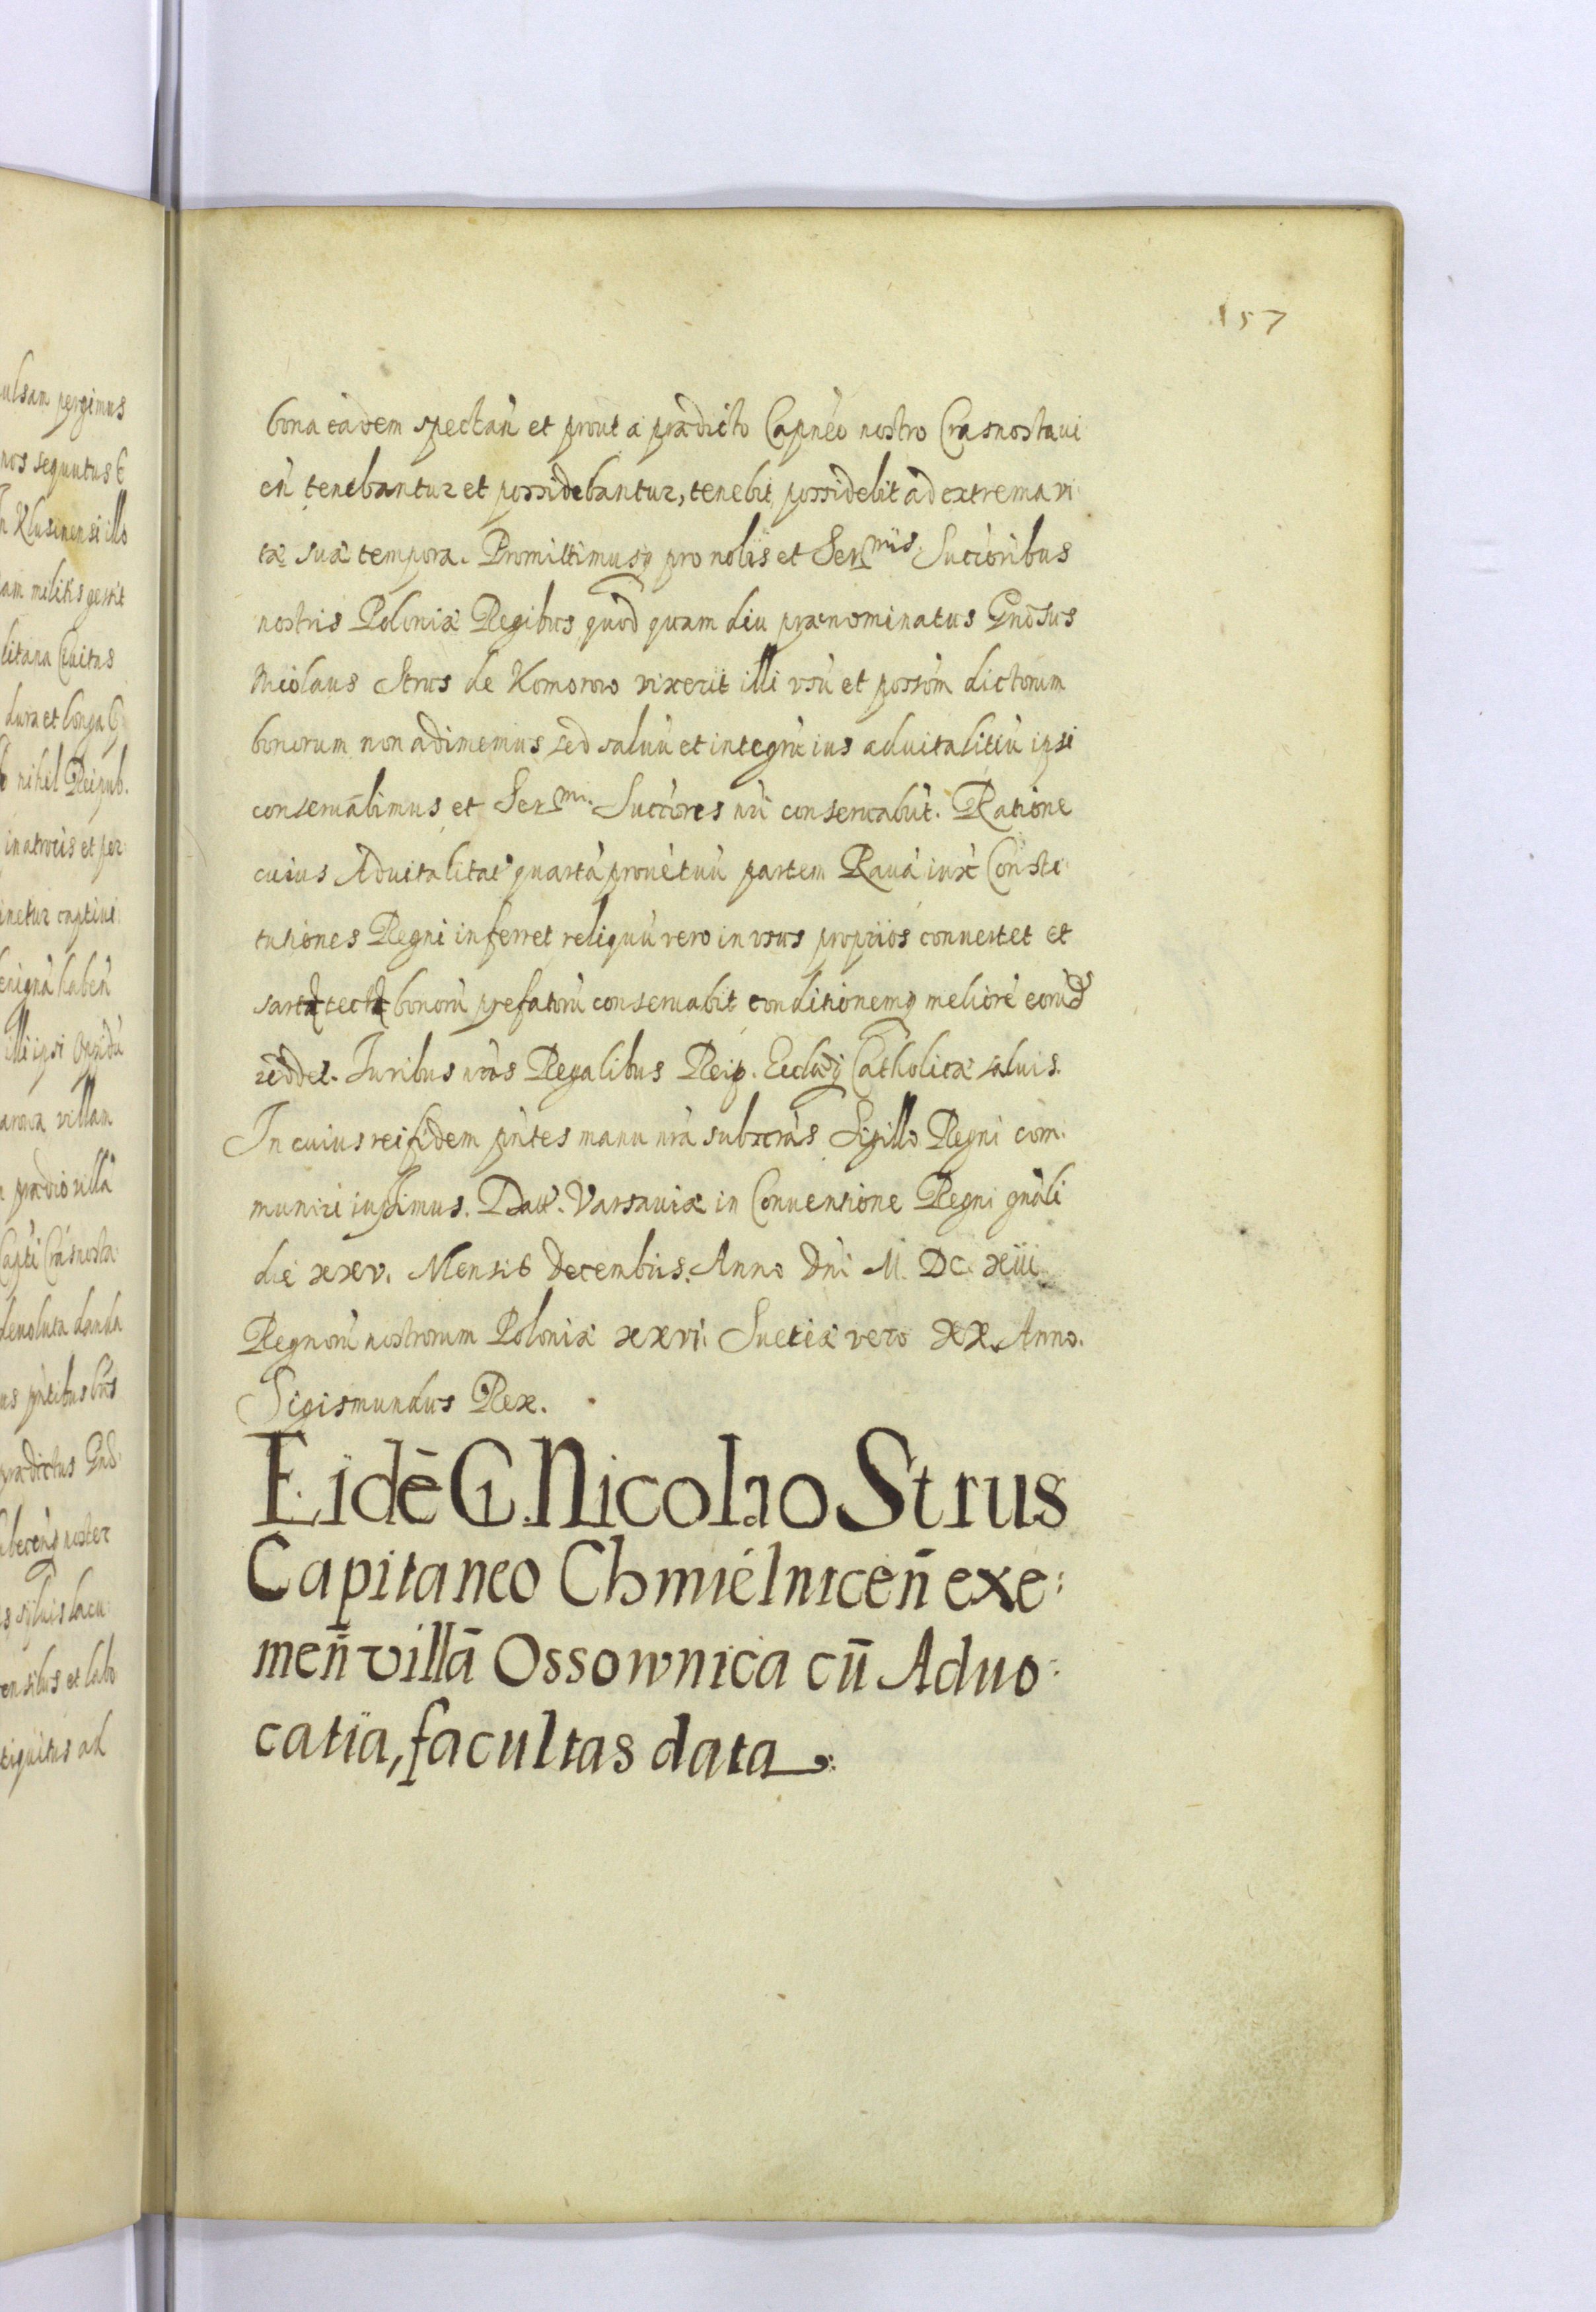 157
bona eadem spectań et prout a prædicto Capnéo nostro Crasnostavi
eń tenebantur et possidebantur, tenebit possidebit ad extrema vi
tæ suæ tempora. Promittimusq pro nobis et Ser^mis Succoribus
nostris Poloniæ Regibus, quod quam diu prænominatus Gnosus
Nicolaus Strus de Komorow vixerit illi usū et possom dictorum
bonorum non adimemus sed salvū et integrū ius advitalitiū ipsi
conservabimus et Ser^mi Succores nri conservabūt. Ratione
cuius Advitalitat quartā provētuū partem Ravā iuxt Consti
tutiones Regni inferret reliquū vero in usus proprios convertet et
sarta tecta bonorū prefatorū conservabit conditionemq meliorē eorūd
reddet. Juribus nris Regalibus Reip. Ecclæq Catholicæ salvis.
In cuius rei fidem pntes manu nra subscras Sigillo Regni com
muniri iussimus. Datt. Varsaviæ in Conventione Regni gnali
die xxv. Mensis Decembris. Anno Dni M. DC. xiii
Regnorū nostrorum Poloniæ xxvi. Suetiæ vero XX. Anno.
Sigismundus Rex.
Eidē G. Nicolao Strus
Capitaneo Chmielniceñ exe:
meñ villā Ossownica cū Advo:
catia, facultas data
ulsam pergimus
nos sequutus
Klusinensi illo
am militis gessit
litana Civitas
dura et longa
nihil Reipub.
in atrocis et per
inetur captivi
benignā habeń
illi ipsi Oppidū
arona villam
prædio villā
Capti Crasnosta
devoluta danda
us pntibus lris
prædictus Gno
noster
s sylvis lacu
ensibus et labo
tiquitus ad